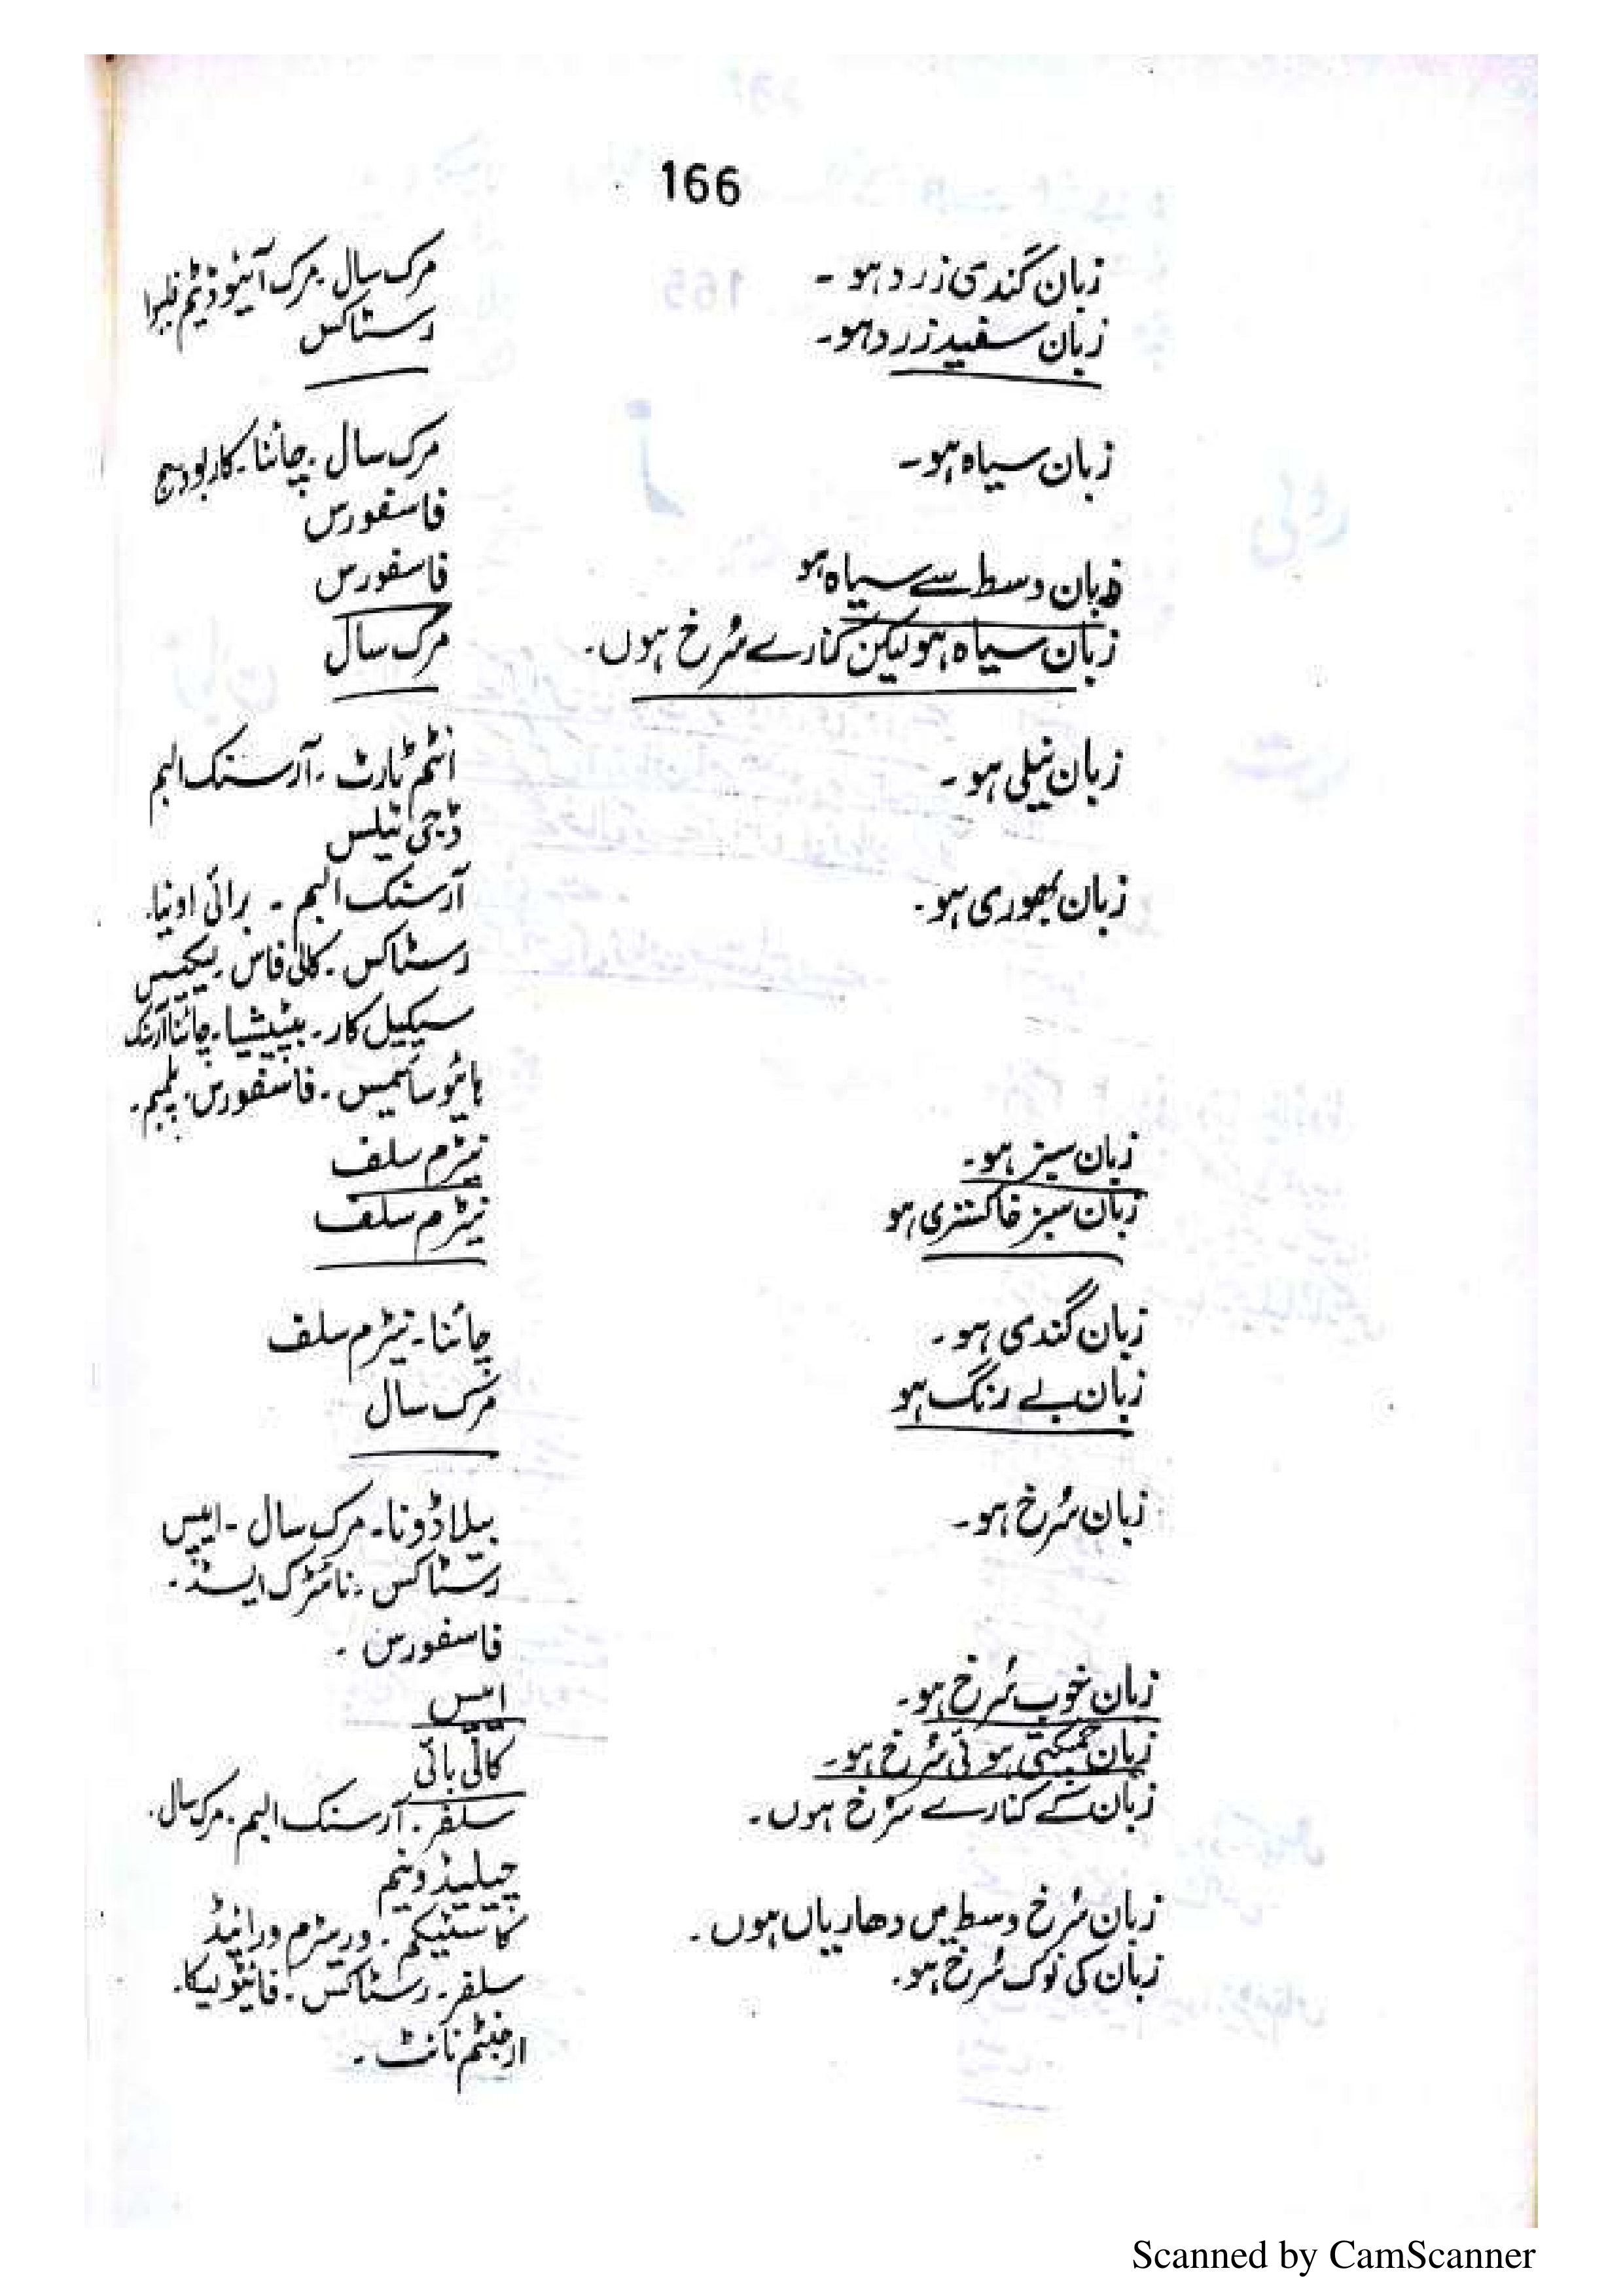 166
زبان گندی زرد ہو۔ مرک سال۔ مرک آئیوڈیٹم فلیوا
زبان سفید زرد ہو۔ رسٹاکس
زبان سیاہ ہو۔ مرک سال۔ چائنا۔ کاربو ویج
فاسفورس
زبان وسط سے سیاہ ہو فاسفورس
زبان سیاہ ہو لیکن کنارے سُرخ ہوں۔ مرک سال
زبان نیلی ہو۔ انٹم ٹارٹ۔ آرسنک البم
ڈجی ٹیلس
زبان بھوری ہو۔ آرسنک البم۔ برائی اونیا۔
رسٹاکس۔ کالی فاس۔ لیکیسس
سیکیل کار۔ بپٹیشیا۔ چائنا آرسنک
ہائیوسائمس۔ فاسفورس۔ پلمبم۔
زبان سبز ہو۔ نیٹرم سلف
زبان سبز خاکستری ہو نیٹرم سلف
زبان گندی ہو۔ چائنا۔ نیٹرم سلف
زبان بے رنگ ہو مرک سال
زبان سُرخ ہو۔ بیلاڈونا۔ مرک سال۔ ایپس
رسٹاکس۔ نائٹرک ایسڈ۔
فاسفورس۔
زبان خوب سُرخ ہو۔ ایپس
زبان چمکتی ہوئی سُرخ ہو۔ کالی بائی
زبان کے کنارے سُرخ ہوں۔ سلفر۔ آرسنک البم۔ مرک سال۔
چیلیڈونیم
زبان سُرخ وسط میں دھاریاں ہوں۔ کاسٹیکم۔ وریٹرم ورائیڈ
زبان کی نوک سُرخ ہو۔ سلفر۔ رسٹاکس۔ فائیٹولیکا۔
ارجنٹم نائٹ۔
Scanned by CamScanner